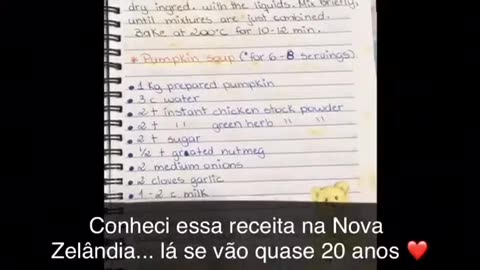 dry ingred. with the liquids. Mix briefly,
until mixtures are just combined.
Bake at 200°C for 10-12 min.
* Pumpkin soup (*for 6-8 servings)
• 1 Kg prepared pumpkin
• 3 c water
• 2 t instant chicken stock powder
• 2 t " green herb " "
• 2 t sugar
• 1/2 t greated nutmeg
• 2 medium onions
• 2 cloves garlic
• 1-2 c milk
Conheci essa receita na Nova
Zelândia... lá se vão quase 20 anos ❤️